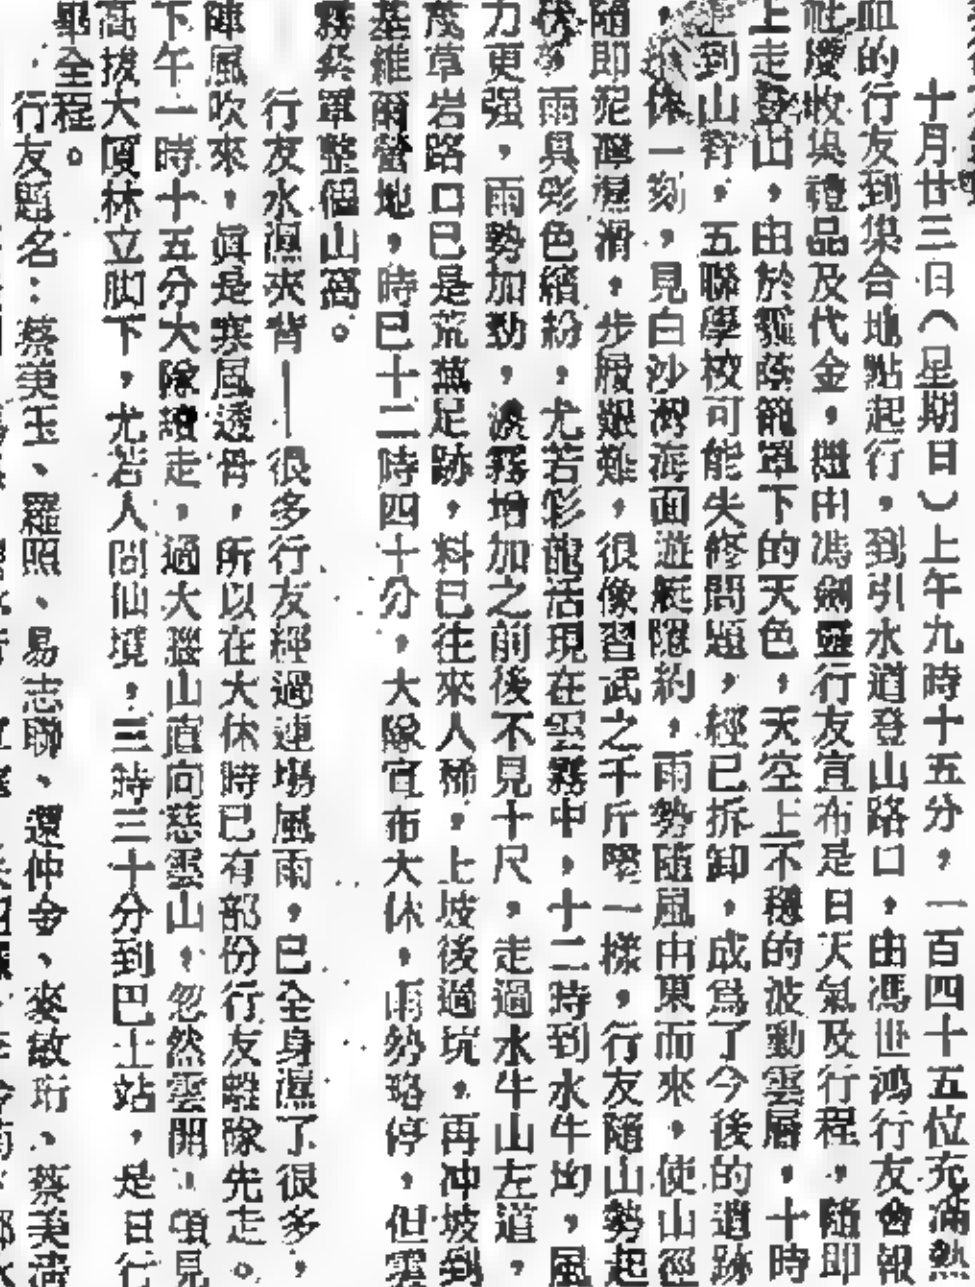 十月廿三日(星期日)上午九時十五分，一百四十五位充滿熱
血的行友到集合地點起行，到引水道登山路口，由馮世鴻行友會報
社慶收集禮品及代金，繼由馮劍靈行友宣布是日天氣及行程，隨即
上走登山，由於籠罩下的天色，天空上不穩的波動雲層，十時
走到山脊，五聯學校可能失修問題，經已拆卸，成為了今後的遺跡
，休一刻，見白沙灣海面遊艇隱約，雨勢隨風由東而來，使山徑
隨即泥濘濕滑，步履艱難，很像習武之千斤墜一樣，行友隨山勢起
伏，雨具彩色繽紛，尤若彩龍活現在雲霧中，十二時到水牛坳，風
力更强，雨勢加勁，濃霧增加之前後不見十尺，走過水牛山左道，
茂草岩路口已是荒蕪足跡，料已往來人稀，上坡後過坑，再冲坡到
基維爾營地，時已十二時四十分，大隊宣布大休，雨勢略停，但雲
霧祭罩整個山窩。
行友水濕夾背——很多行友經過連場風雨，已全身濕了很多，
陣風吹來，眞是寒風透骨，所以在大休時已有部份行友離隊先走。
下午一時十五分大隊續走，過大腦山直向慈雲山，忽然雲開，頃見
高拔大厦林立脚下，尤若人間仙境，三時三十分到巴士站，是日行
畢全程。
行友題名：蔡美玉、羅照、易志聯、還仲令、來敏珩、蔡美